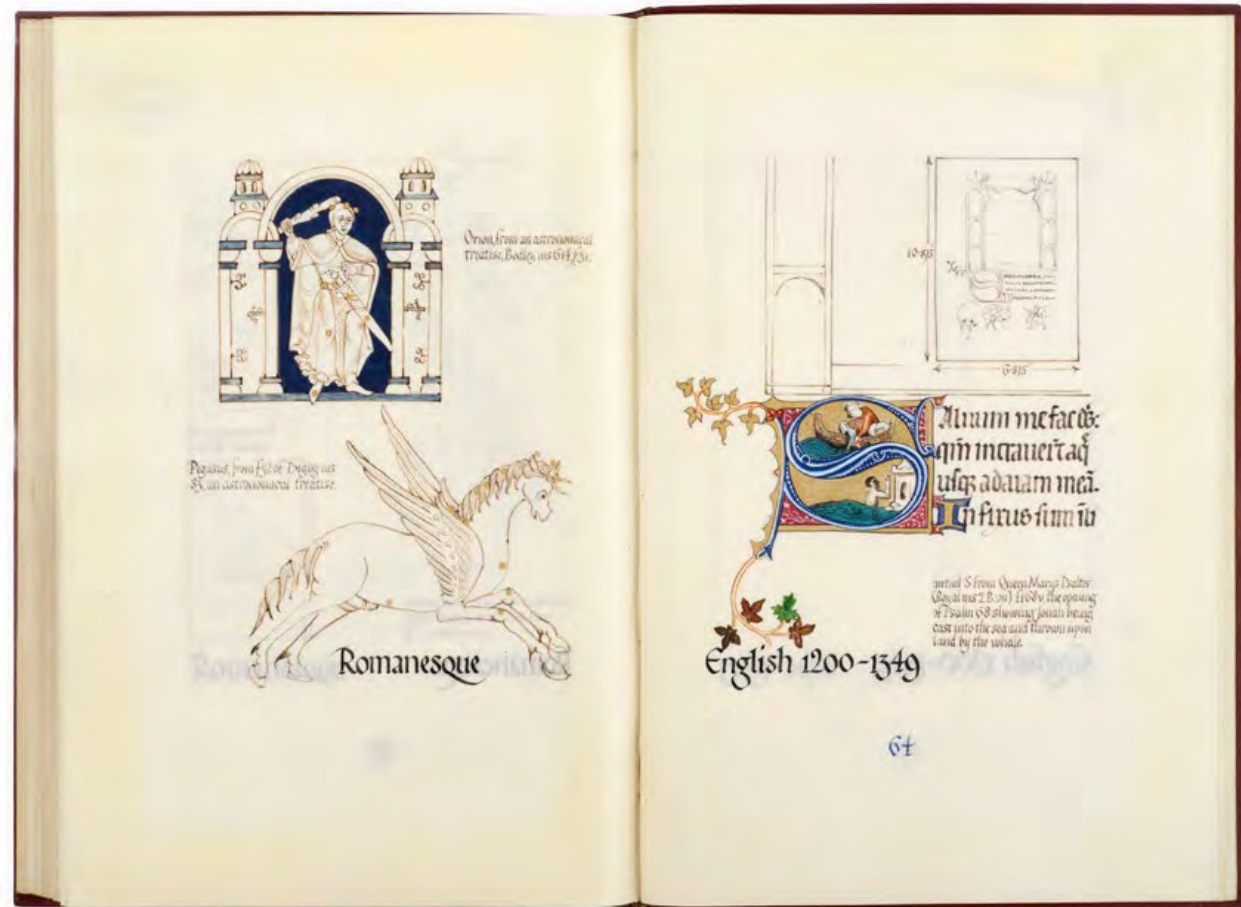 Orion, from an astronomical
treatise, Bodley ms 614, f.31.
Pegasus, from f.52 of Digby ms
83, an astronomical treatise.
Romanesque
10·875
6·875
Salvum me fac
usq; ad aiam meā.
Infixus sum
initial S from Queen Mary's Psalter
(Royal ms 2.B.vii) f.168v, the opening
of Psalm 68 showing Jonah being
cast into the sea and thrown upon
land by the whale.
English 1200-1349
64